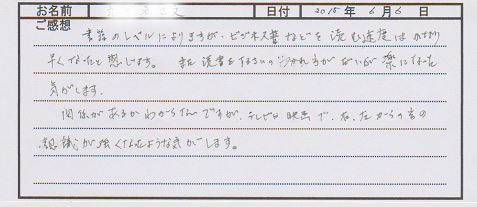 お名前 日付 2015年 6月 6日
ご感想
書籍のレベルによりますが、ビジネス書などを読む速度はかなり
早くなったと感じます。また読書をするのにつかれるがないが楽になった
気がします。
関係があるかわからないですが、テレビや映画で、右、左からの音の
認識が強くなったような気がします。